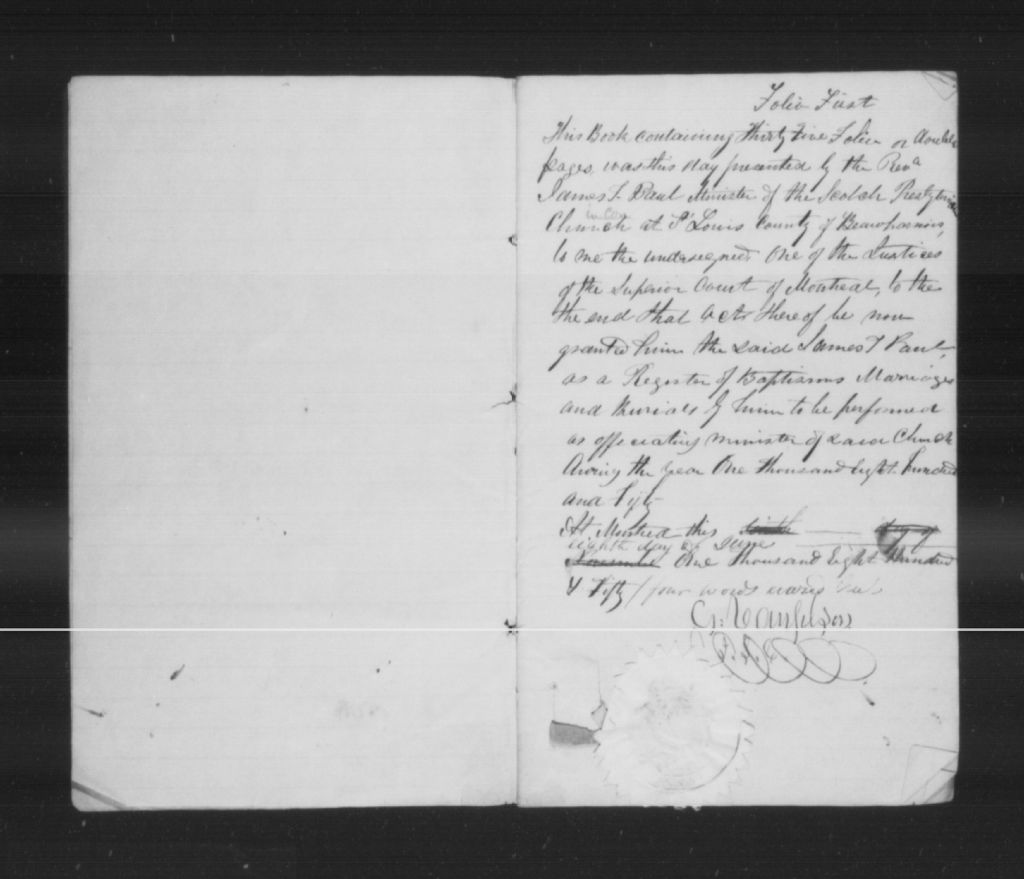 Folio First
This Book containing Thirty Five Folio or double
pages was this day presented by the Revd
James T Paul Minister of the Scotch Presbyterian
Church at St Louis County of Beauharnois,
to me the undersigned One of the Justices
of the Superior Court of Montreal, to the
the end that Acts thereof be now
granted him the said James T Paul,
as a Register of Baptisms Marriages
and Burials by him to be performed
as officiating minister of said Church
during the year One thousand Eight hundred
and Fifty
At Montreal this day of
eighth day of June
One thousand Eight Hundred
& Fifty / four words